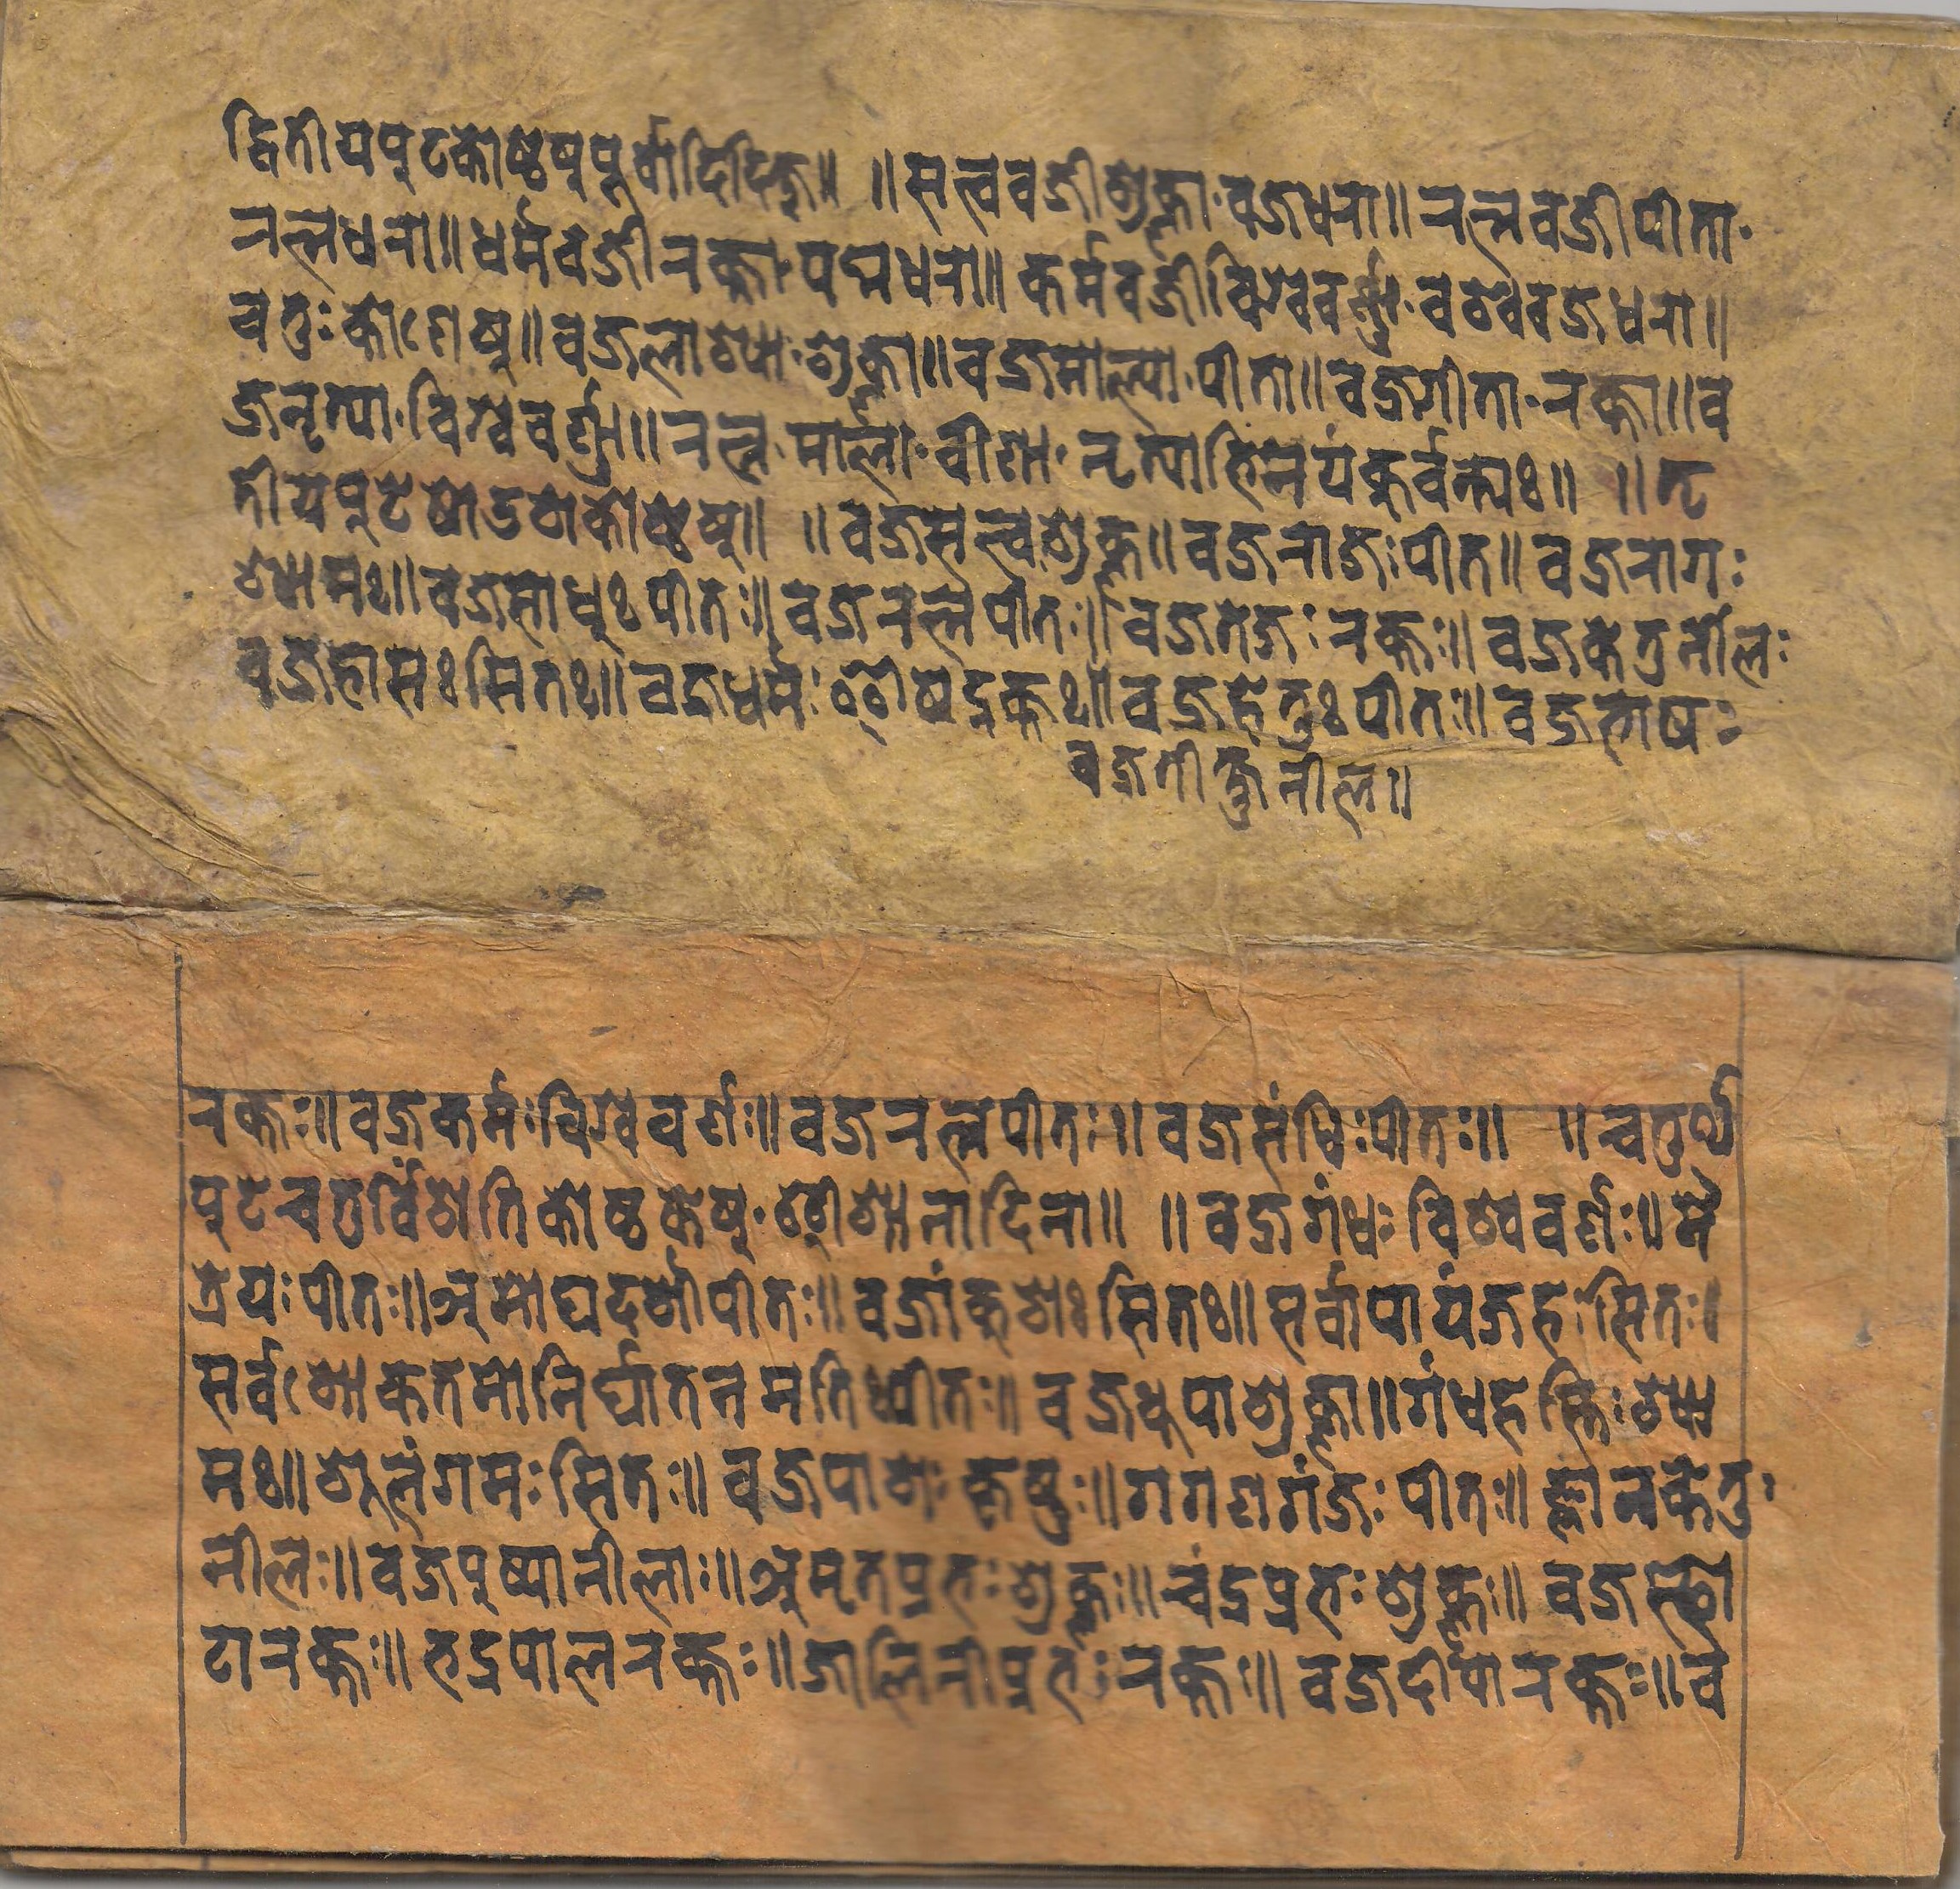 द्वितीयपुटकोष्ठषुपूर्वादिदिक्षु॥ ॥सत्त्ववज्रीशुक्ला·वज्रधरा॥रत्नवज्रीपीता·
रत्नधरा॥धर्मवज्रीरक्ता·पद्मधरा॥कर्मवज्रीविश्ववर्ण्णा·वश्ववज्रधरा॥
चतुःकोणेषु॥वज्रलाश्या·शुक्ला॥वज्रमाल्या·पीता॥वज्रगीता·रक्ता॥व
ज्रनृत्या·विश्ववर्णा॥रत्न·माला·वीणा·नृत्याभिनयंकुर्वन्त्यः॥ ॥तृ
तीयपुटेषोडशकोष्ठेषु॥ ॥वज्रसत्त्वशुक्ल॥वज्रराजःपीत॥वज्ररागः
श्यामः॥वज्रसाधुःपीतः॥वज्ररत्नपीतः॥वज्रतेजःरक्तः॥वज्रकेतुनीलः
वज्रहासःसितः॥वज्रधर्मःईषद्रक्तः॥वज्रहेतुःपीतः॥वज्रभाषः
वज्रतीक्ष्णनील॥
रक्तः॥वज्रकर्मःविश्ववर्णः॥वज्ररत्नपीतः॥वज्रसंधिःपीतः॥ ॥चतुर्थ
पुटेचतुर्विंशतिकोष्ठकेषु·ईशानादिना॥ ॥वज्रगंधःविश्ववर्णः॥मै
त्रेयःपीतः॥अमोघदर्शीपीतः॥वज्रांकुशःसितः॥सर्वापायंजहःसितः॥
सर्वशोकतमोनिर्घातनमतिःपीतः॥वज्रधुपाशुक्ला॥गंधहस्तिःश्या
मः॥शुरंगमःसितः॥वज्रपाशःकृष्णः॥गगणगंजःपीतः॥ज्ञानकेतुः
नीलः॥वज्रपुष्पानीलाः॥अमृतप्रभःशुक्लः॥चंद्रप्रभःशुक्लः॥वज्रस्फो
टारक्तः॥भद्रपालरक्तः॥जालिनीप्रभःरक्तः॥वज्रदीपारक्तः॥व